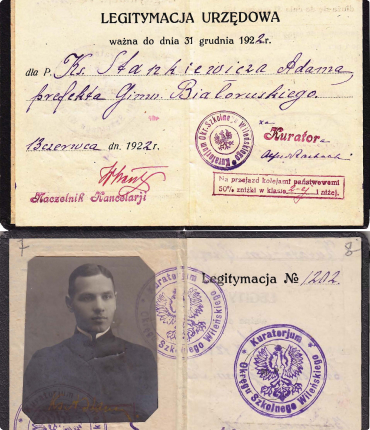 LEGITYMACJA URZĘDOWA
ważna do dnia 31 grudnia 1922 r.
dla P. Ks. Stankiewicza Adama
prefekta Gimn. Białoruskiego.
Kuratorjum Okr. Szkolnego Wileńskiego
za
Kurator
13 czerwca dn. 1922 r.
Naczelnik Kancelarji
Na przejazd kolejami państwowemi
50% zniżki w klasie 2-ej i niżej.
7
8
Legitymacja № 1202.
Kuratorjum
Okręgu Szkolnego Wileńskiego
Kuratorjum
Okręgu Szkolnego Wileńskiego